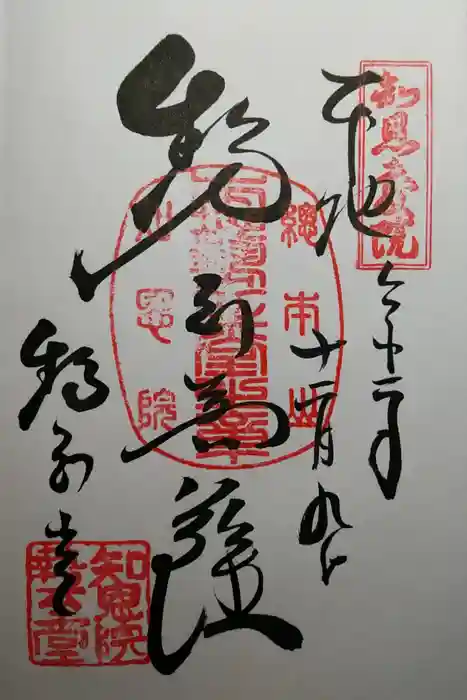 知恩教院
本地
令和二年
十一月九日
勢至菩薩
總本山
知恩院
勢至堂
知恩院
勢至堂